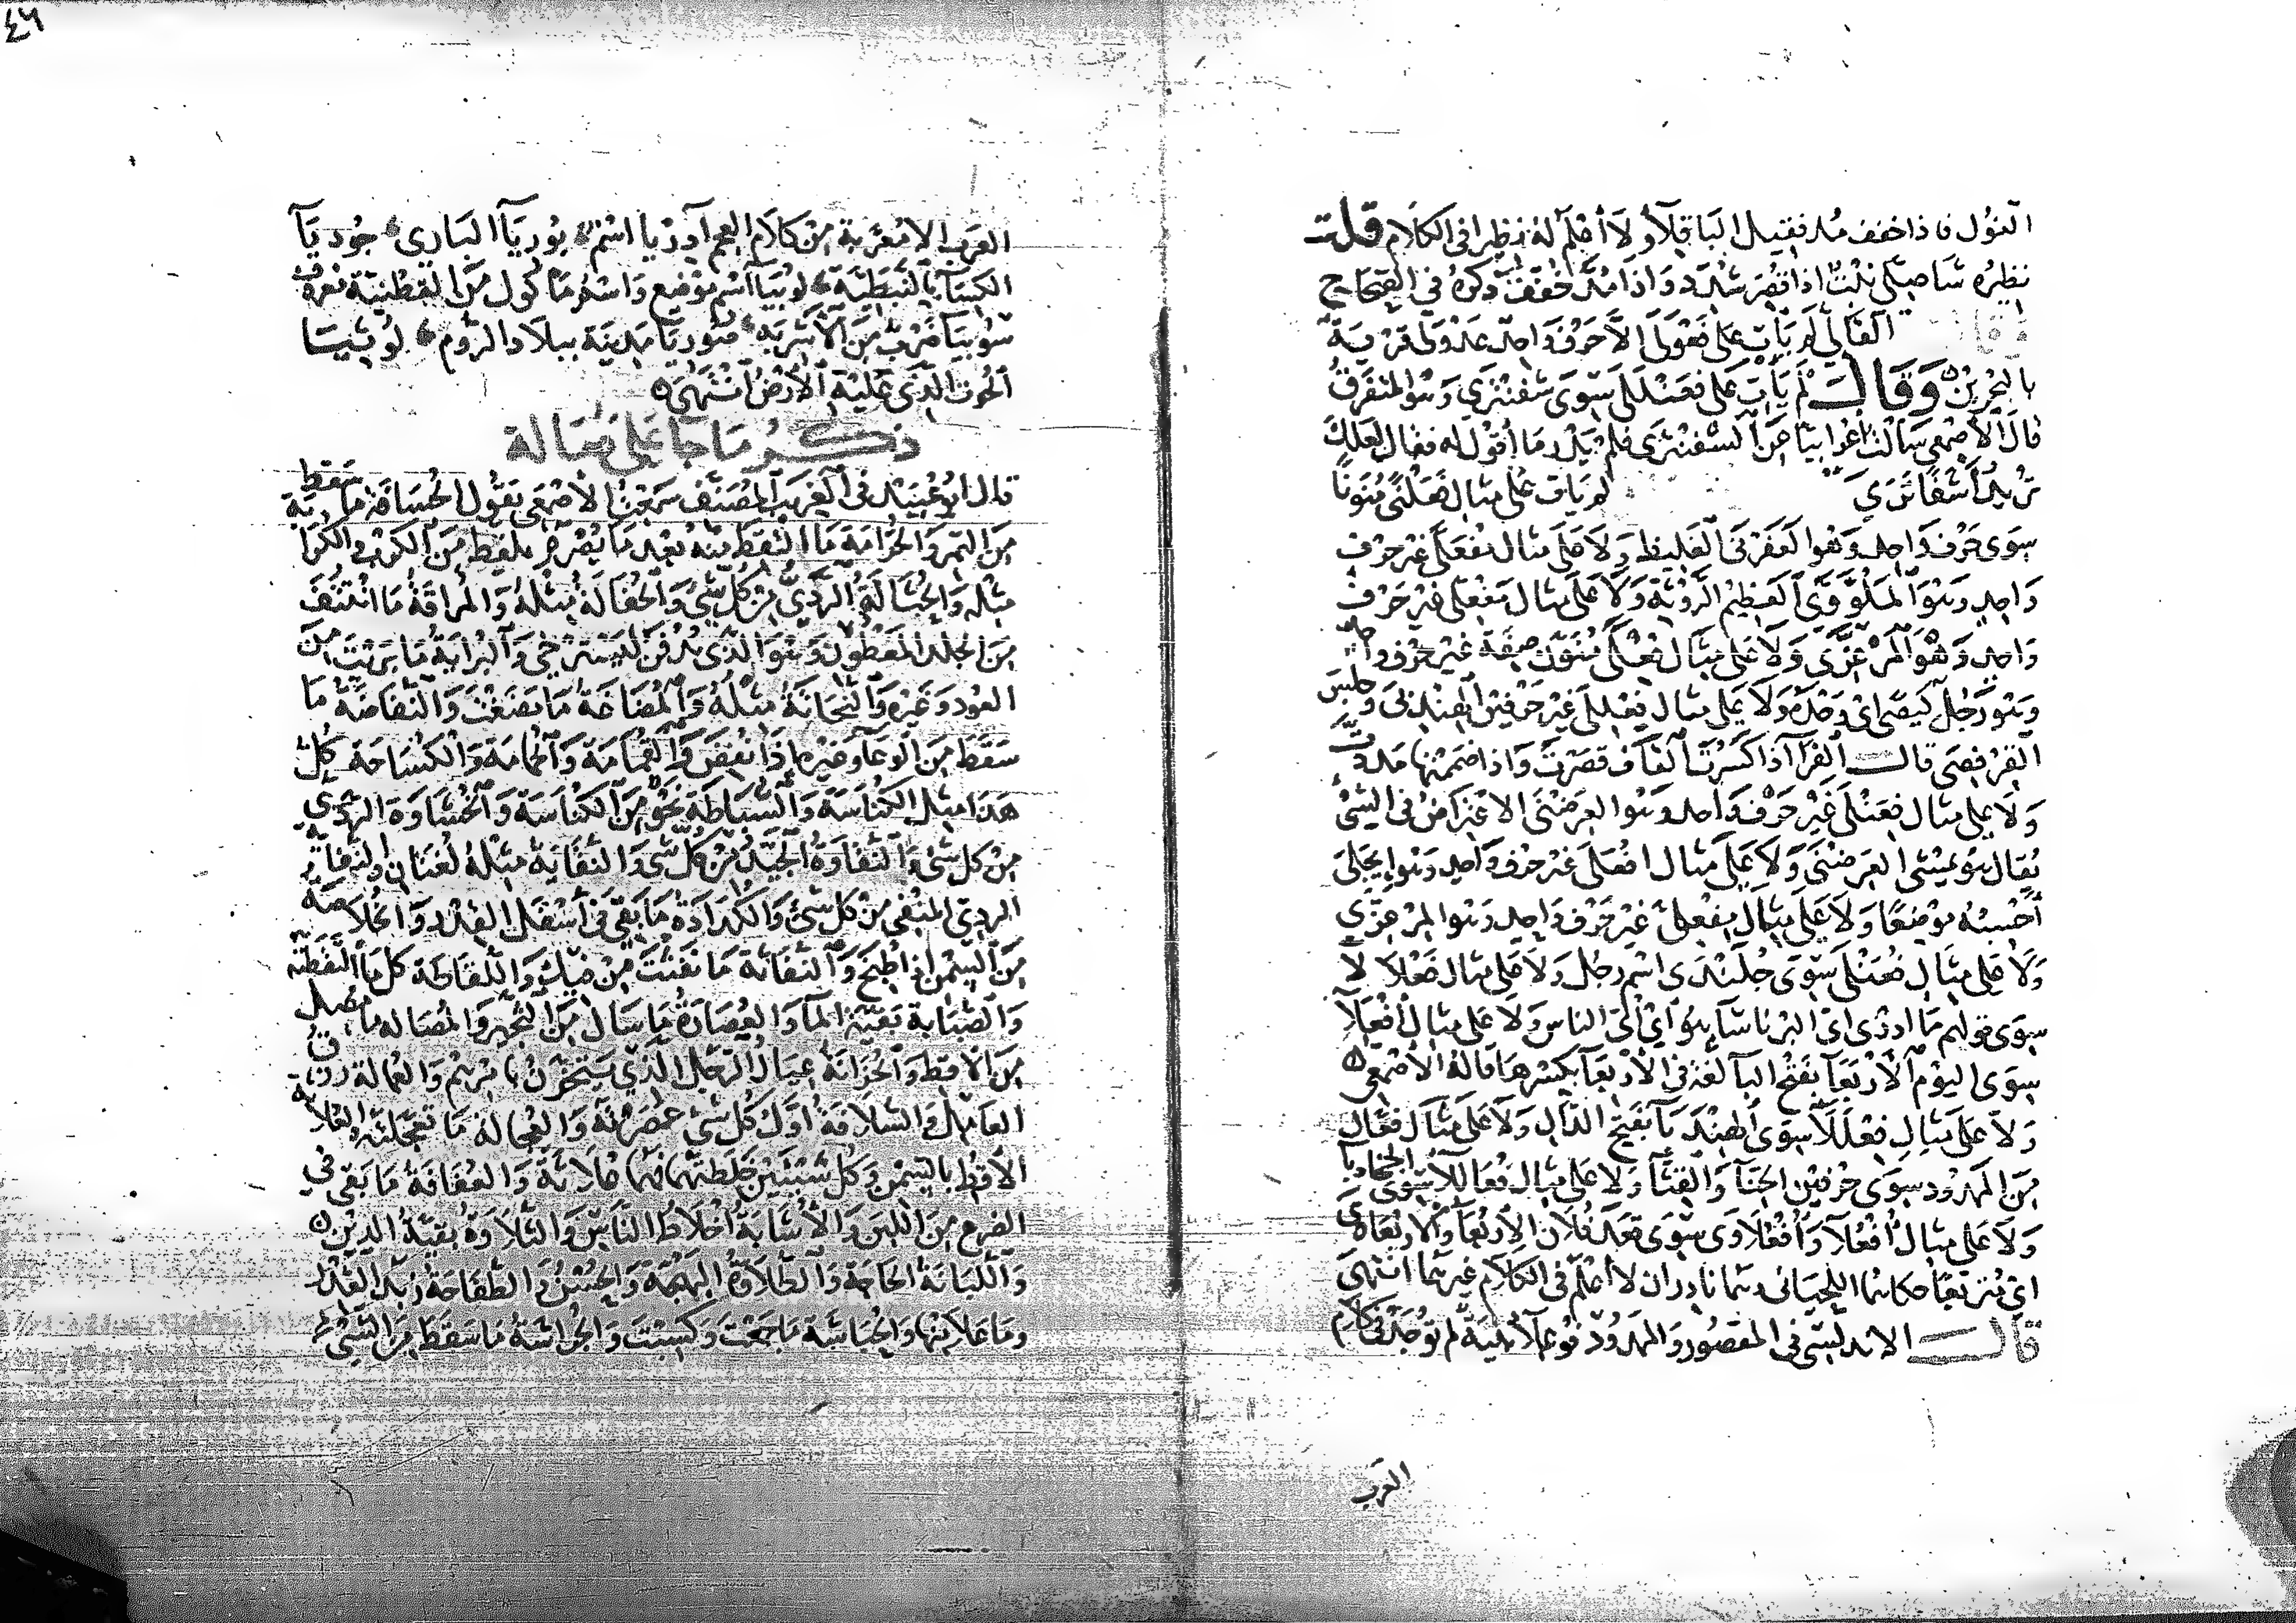 الفول فاذا خفف مد فقيل الباقلاء ولا أعلم له نظيرا في الكلام قلت
نظيره شاصلى نبت اذا قصر شدد واذا مد خفف ذكره في الصحاح
وقال القالي لم يات على فعولى الا حرف واحد عدولى قرية
بالبحرين وقال لم يأت على فعنللى سوى شفنترى وهو المتفرق
قال الاصمعي سألت أعرابيا عن الشفنترى فلم يدر ما أقول له فقال لعلك
تريد أشفاترى لم يات على مثال فعلنى منونا
سوى حرف واحد وهو العفرنى الغليظ ولا على مثال مفعلى غير حرف
واحد وهو المكورى العظيم الروثة ولا على مثال مفعلى غير حرف
واحد وهو المرعزى ولا على مثال فعلى منون صفة غير حرف واحد
وهو رجل كيصى اى وحده ولا على مثال فعللى غير حرفين الهندبى وجلس
القرفصى قال الفرا اذا كسرت القاف قصرت واذا ضممتها مددت
ولا على مثال فعنلى غير حرف واحد وهو العرضنى الاعتراض في الشئ
يقال هو يمشى العرضنى ولا على مثال افعلى غير حرف واحد وهو ايجلى
أحسبه موضعا ولا على مثال مفعلى غير حرف واحد وهو المرعزى
ولا على مثال فعنلى سوى جلندى اسم رجل ولا على مثال فعلالا
سوى قولهم ما ادرى اى البرناساء هو اي اى الناس ولا على مثال أفعلاء
سوى اليوم الأربعاء بفتح الباء لغة في الأربعاء بكسرها قاله الاصمعي
ولا على مثال فعللاء سوى الهندباء بفتح الدال ولا على مثال فعال
من الممدود سوى حرفين الحناء والقثاء ولا على مثال فعاللاء سوى الجخادبا
ولا على مثال أفعلاء وأفعلاوى سوى قعد فلان الاربعاء والاربعاوى
اى متربعا حكاهما اللحيانى وهما نادران لا أعلم في الكلام غيرهما انتهى
قال الاندلسي في المقصور والممدود فوعلاء أبنية لم توجد في كلام
العرب
٤٦
العرب الا معربة من كلام العجم أوريا اسم بوريآ الباري جوديآ
الكسآ بالنبطية لوبيا اسم موضع واسم ماكول من القطنية معروف
سوبيا ضرب من الأشربة صوريا مدينة ببلاد الروم لوبيتيا
الحوت الذي عليه الارض انتهى
ذكر ما جا على فعالة
قال ابو عبيد في الغريب المصنف سمعت الأصمعي يقول الحسافة ما سقط
من التمر والجرامة ما التقط منه بعد ما يصرم يلقط من الكرب والكرابة
مثله والحثالة الردي من كل شي والحفالة مثله والمراقة ما انتتف
من الجلد المعطون وهو الذي يدفن ليسترخي والبراية ما بريت من
العود وغيره والنحاتة مثله والمضاغة ما مضغت والنفاضة ما
سقط من الوعاء وغيره اذا نفض والقمامة والخمامة والكساحة كل
هذا مثل الكناسة والسباطة نحو من الكناسة والحشاوة الردي
من كل شئ والنقاوة الجيد من كل شى والنقاية مثله لغتان والنفاية
الردي المنفى من كل شئ والكدادة ما بقي في أسفل القدر والخلاصة
من السمن اذا طبخ والنفاثة ما نفثت من فيك واللقاطة كل ما التقطته
والصبابة بقية المآ والعصارة ما سال من الثجير والمصاله ما مصل
من الاقط والحزانة عيال الرجل الذي يتحزن بامرهم والعمالة رزق
العامل والسلافة أول كل شي عصرته والعجالة ما تعجلته والعلاثة
الأقط بالسمن وكل شيئين خلطتهما فهما علاثة والعفافة ما بقي في
الضرع من اللبن والأشابة أخلاط الناس والتلاوة بقية الدين
واللبانة الحاجة والطلاوة البهجة والحسن والطفاحة زبد القدر
وما علا منها والحباشة ما جمعت وكسبت والجراشة ما سقط من الشئ